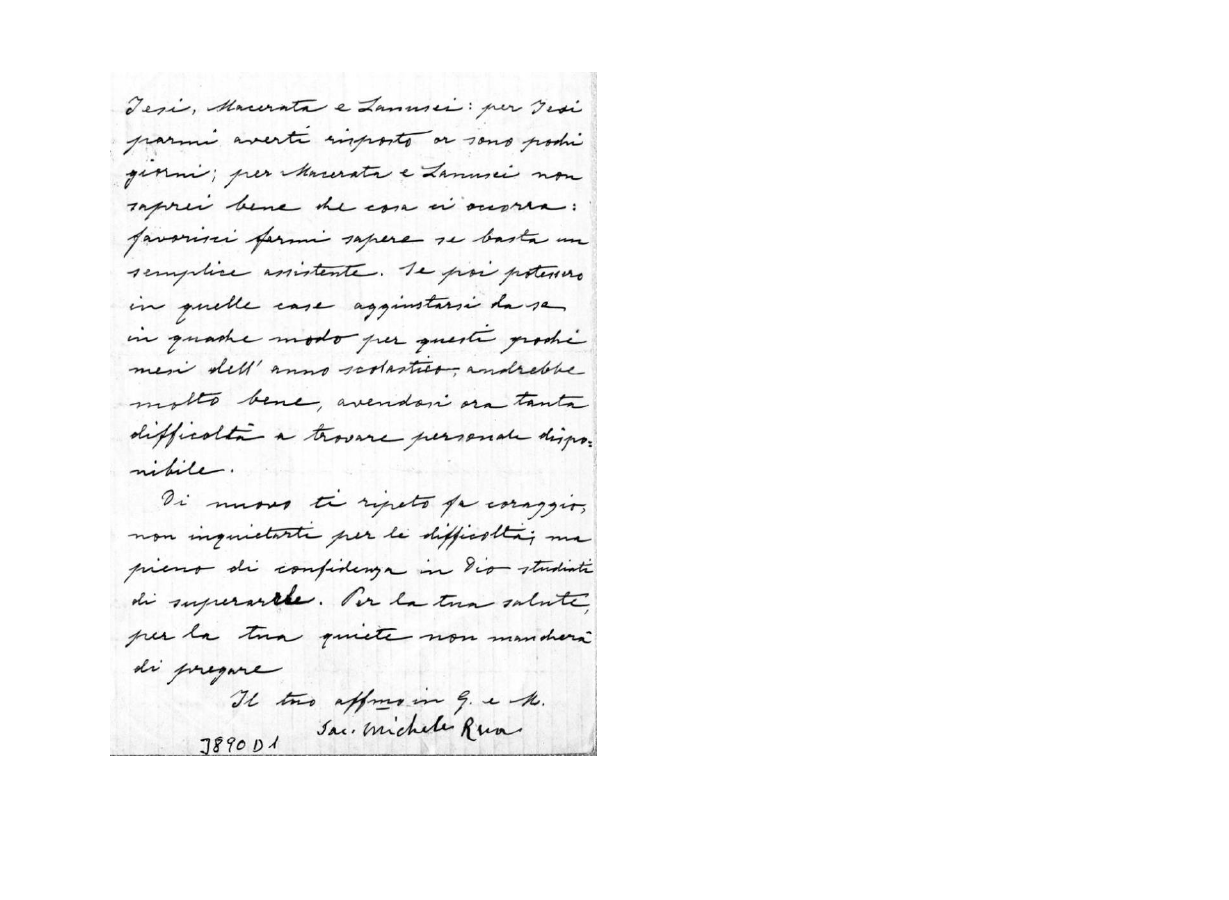 Jesi, Macerata e Lanusei: per Jesi
parmi averti risposto or sono pochi
giorni; per Macerata e Lanusei non
saprei bene che cosa ci occorra:
favorisci farmi sapere se basta un
semplice assistente. Se poi potessero
in quelle case aggiustarsi da se
in qualche modo per questi pochi
mesi dell'anno scolastico, andrebbe
molto bene, avendosi ora tanta
difficoltà a trovare personale dispo=
nibile.
Di nuovo ti ripeto fa coraggio,
non inquietarti per le difficoltà; ma
pieno di confidenza in Dio studiati
di superarle. Per la tua salute,
per la tua quiete non mancherà
di pregare
Il tuo affmo in G. e M.
Sac. Michele Rua
J890 D1